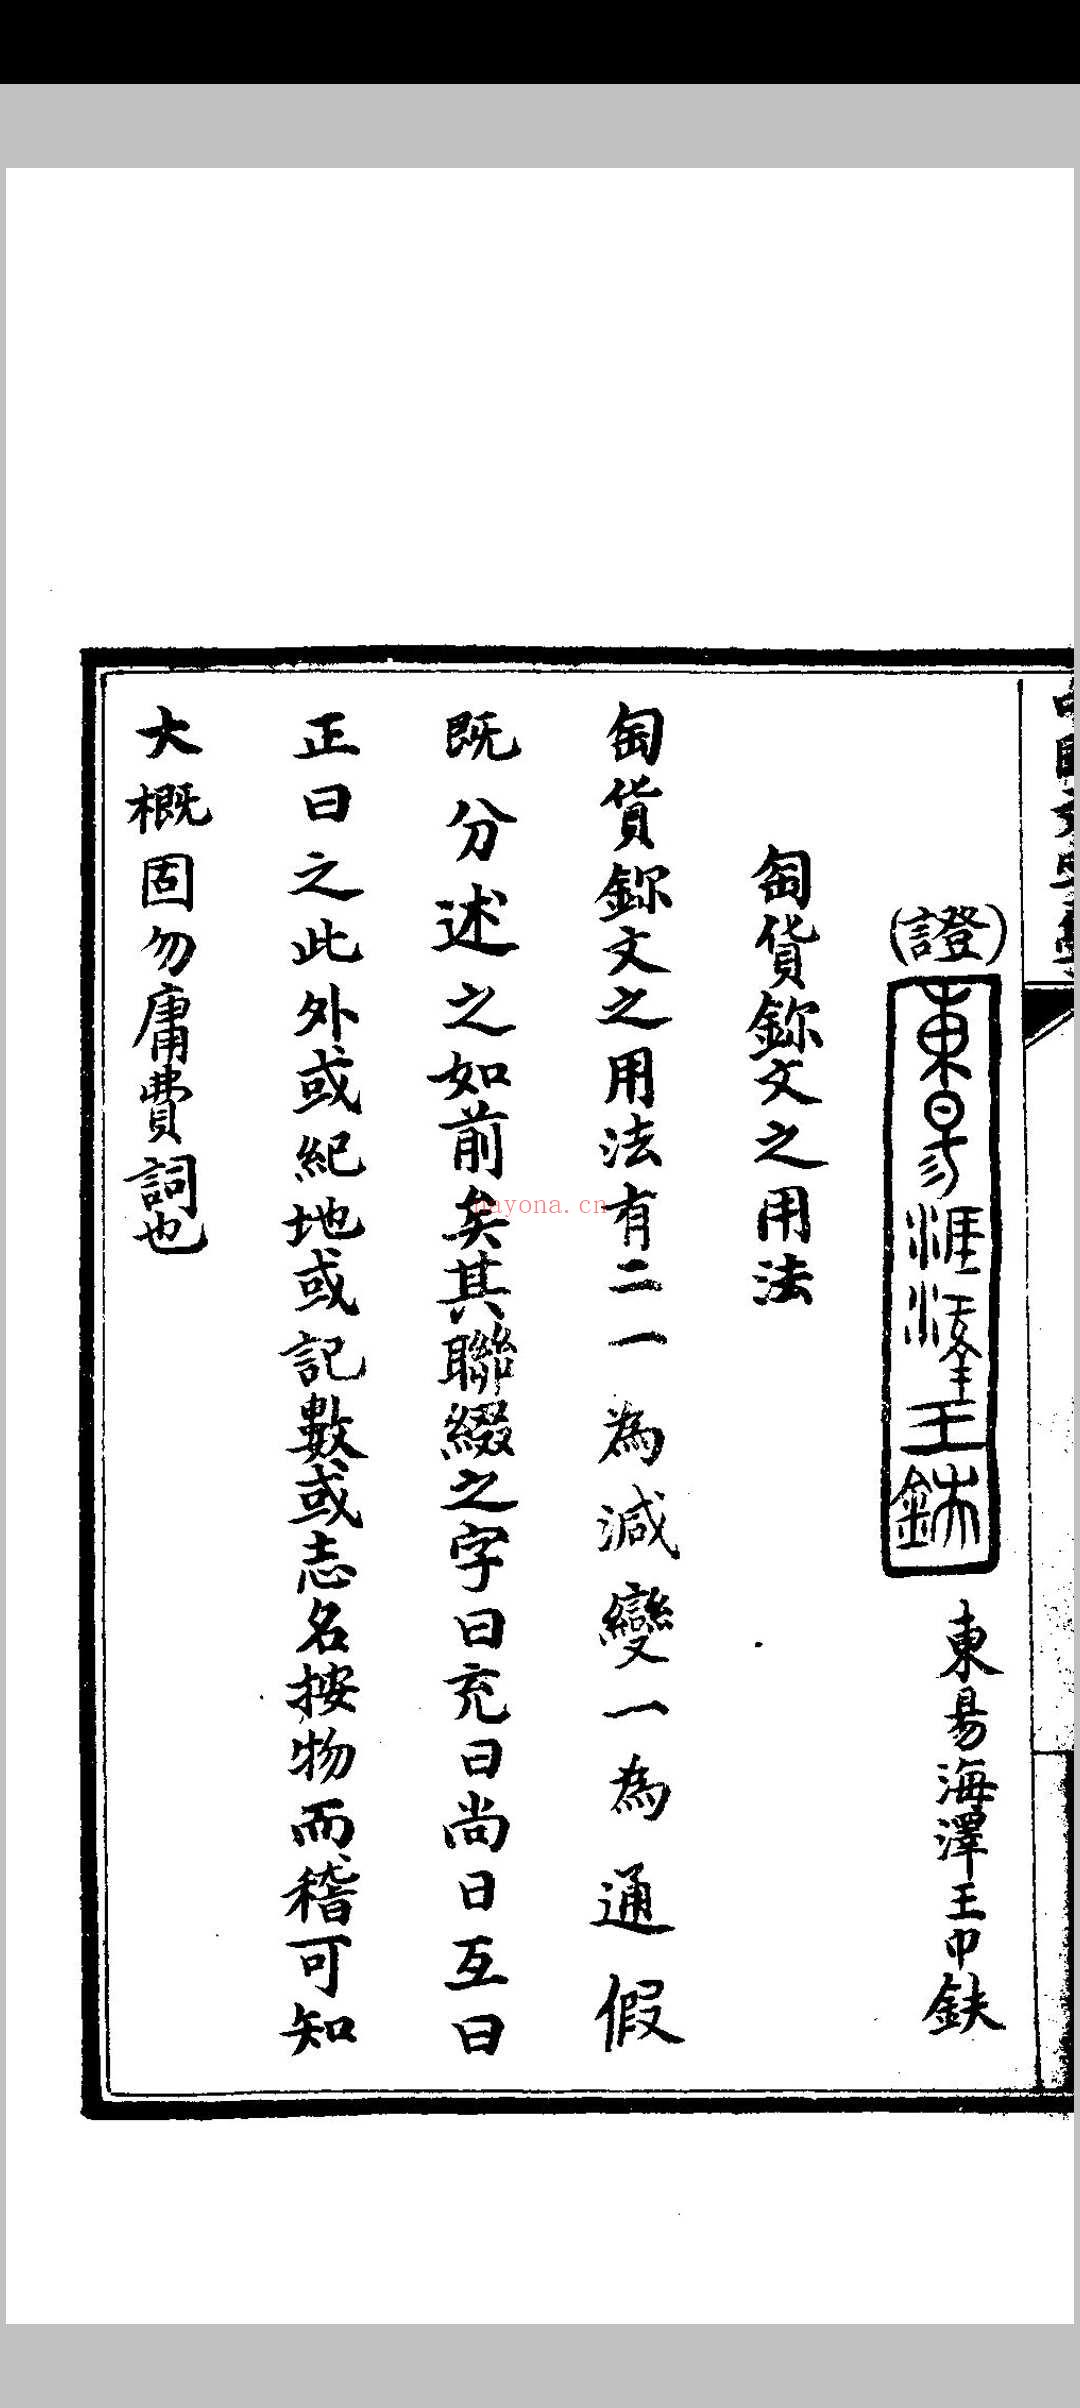 (證)
東昜海澤王巾鉄
匋貨鉨文之用法
匋貨鉨文之用法有二一為減變一為通假
既分述之如前矣其聯綴之字曰充曰尚曰互曰
正曰之此外或紀地或記數或志名按物而稽可知
大概固勿庸費詞也
nayona.cn